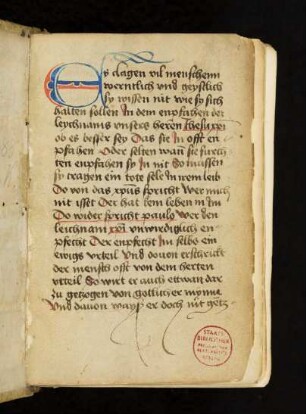 Es clagen vil menschenn
werntlich vnd geystlich
sy wissen nit wie sy sich
halten sollen In dem enpfahen des
leychnams vnsers herren Ihesu xpi
ob es besser sey Das sie In offt en
pfahen Oder selten wan sie furch
ten enpfahen sy In nit So mussen
sy tragen ein tote sele In irem leib
Do von das xpus spricht Wer mich
nit isset Der hat kein leben in im
Do wider spricht paulus wer den
leichnam xpi vnwirdiglich en
pfecht Der enpfecht Im selbs ein
ewigs vrteil Vnd dovon erschrickt
der mensch offt von dem herten
vrteil So wirt er auch ettwan dar
zu getzogen von gotlicher mynne
Vnd davon wayß er doch nit gentz
STAATS
BIBLIOTHEK
BERLIN